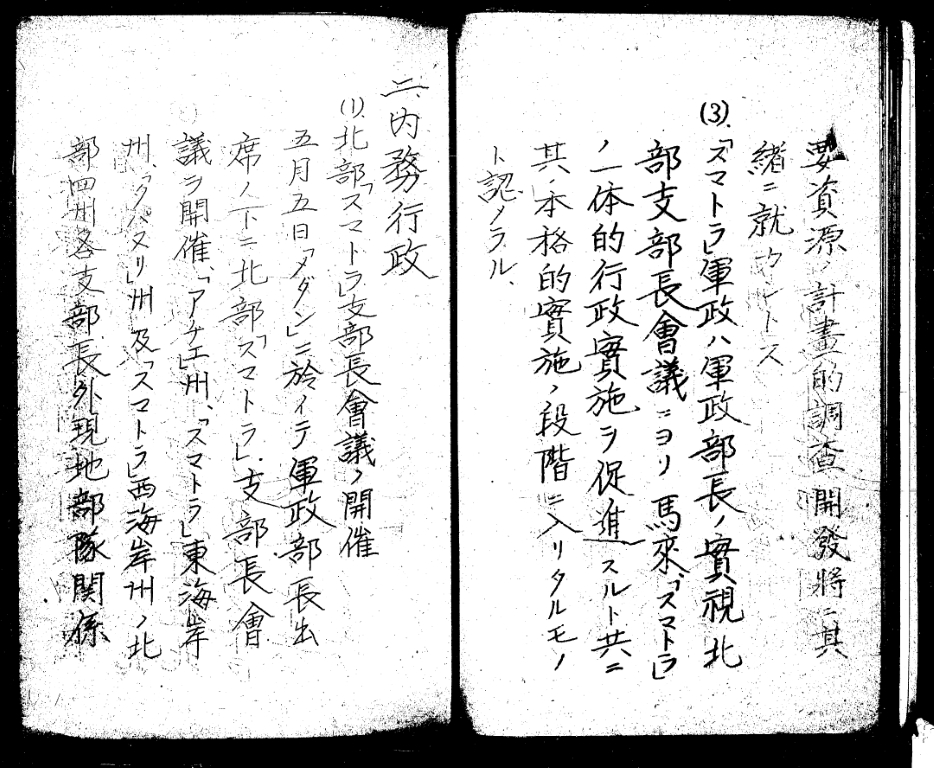 要資源ノ計畫的調査開發將ニ其
緒ニ就カントス
(3)、「スマトラ」軍政ハ軍政部長ノ實視北
部支部長會議ニヨリ馬來、「スマトラ」
ノ一体的行政實施ヲ促進スルト共ニ
其ノ本格的實施ノ段階ニ入リタルモノ
ト認メラル、
二、内務行政
(1)、北部「スマトラ」支部長會議ノ開催
五月五日「メダン」ニ於イテ軍政部長出
席ノ下ニ北部「スマトラ」支部長會
議ヲ開催、「アチエ」州、「スマトラ」東海岸
州、「タパヌリ」州及「スマトラ」西海岸州ノ北
部四州各支部長外現地部隊関係